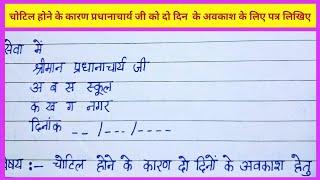 चोटिल होने के कारण प्रधानाचार्य जी को दो दिन के अवकाश के लिए पत्र लिखिए
सेवा में
श्रीमान प्रधानाचार्य जी
अ ब स स्कूल
क ख ग नगर
दिनांक _ _ / _ _ _ / _ _ _ _
विषय :- चोटिल होने के कारण दो दिनों के अवकाश हेतु